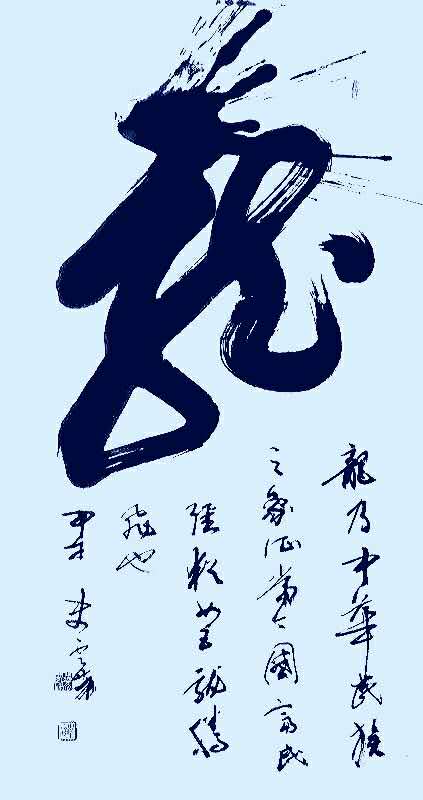 龍
龍乃中華民族
之象征當今國富民
强如龍騰
飛也
甲午